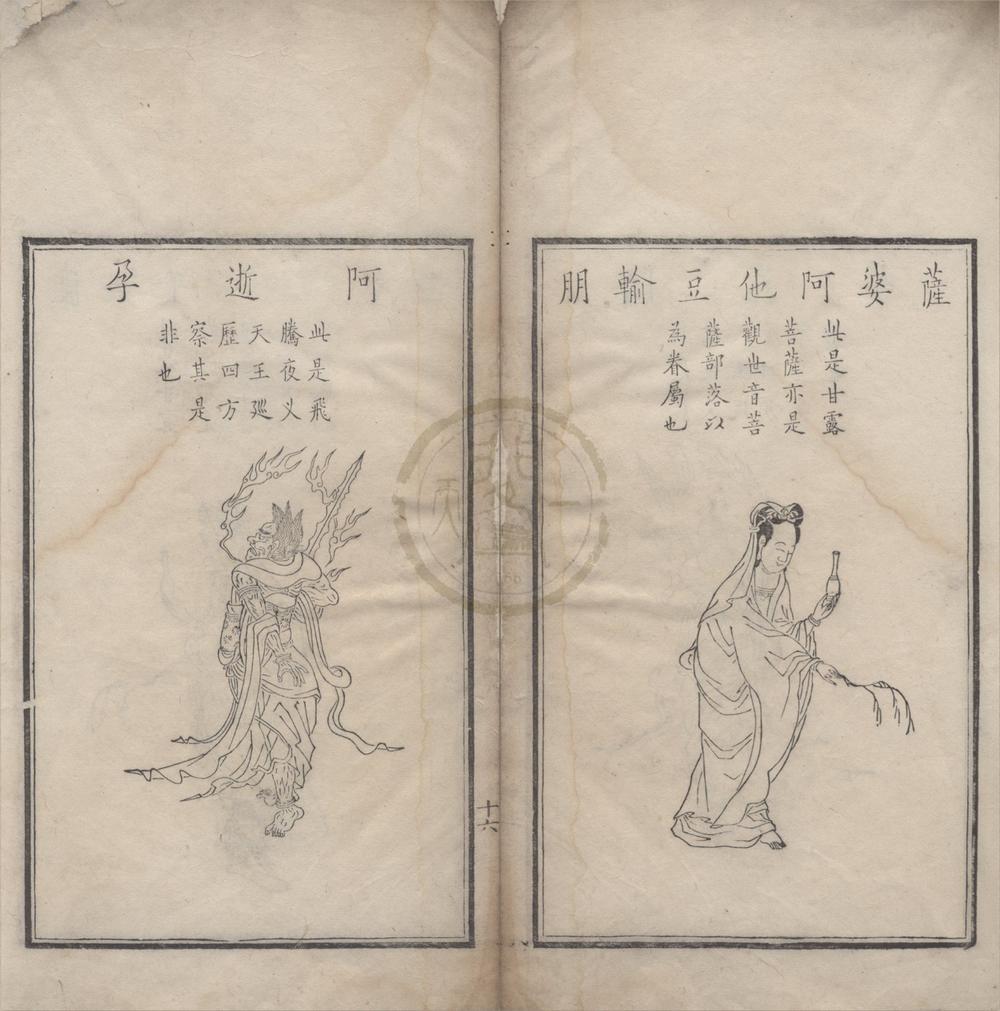 薩婆阿他豆輸朋
此是甘露
菩薩亦是
觀世音菩
薩部落以
為眷屬也
阿逝孕
此是飛
騰夜义
天王廵
歷四方
察其是
非也
十六